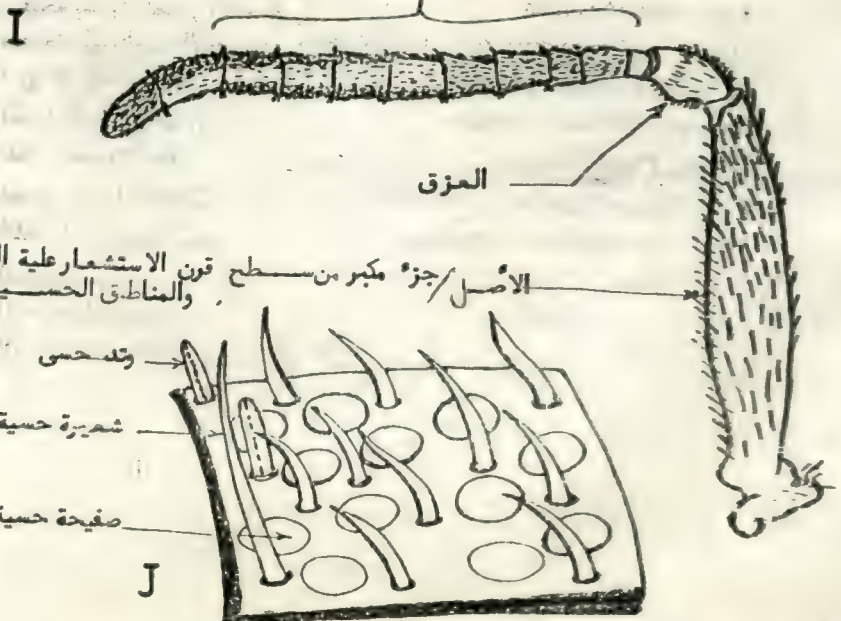 I
العزق
الأصل/جزء مكبر من سطح قرن الاستشعار علية
والمناطق الحسية
وتد حسى
شعيرة حسية
صفيحة حسية
J